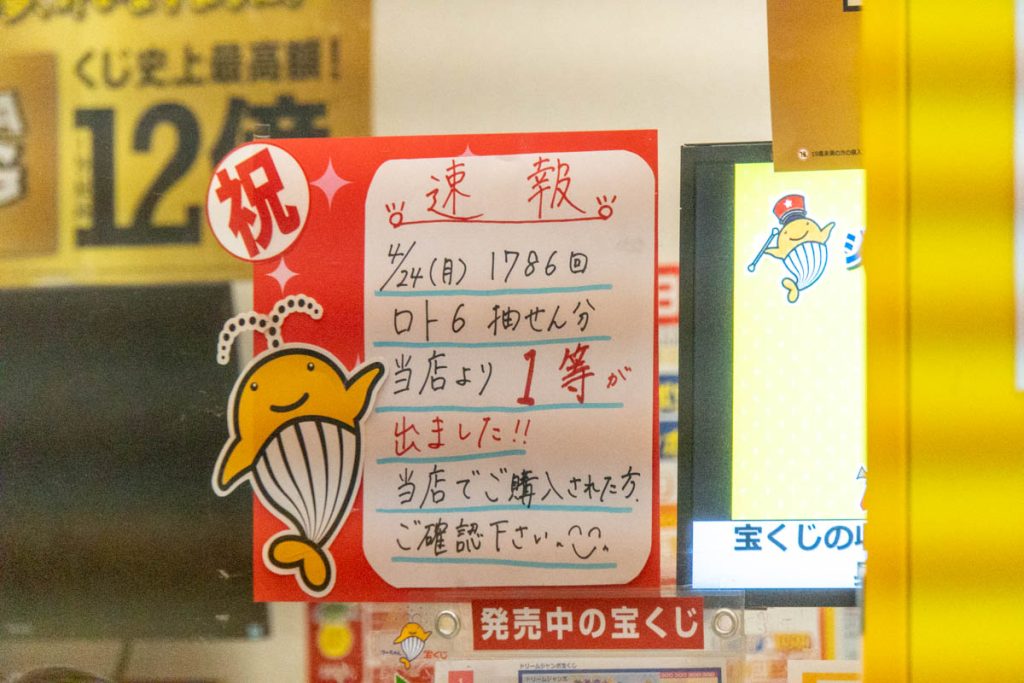 くじ史上最高額!
12億
祝
速報
4/24(月) 1786回
ロト6 抽せん分
当店より 1等が
出ました!!
当店でご購入された方、
ご確認下さい。
宝くじの
発売中の宝くじ
宝くじ
ドリームジャンボ宝くじ